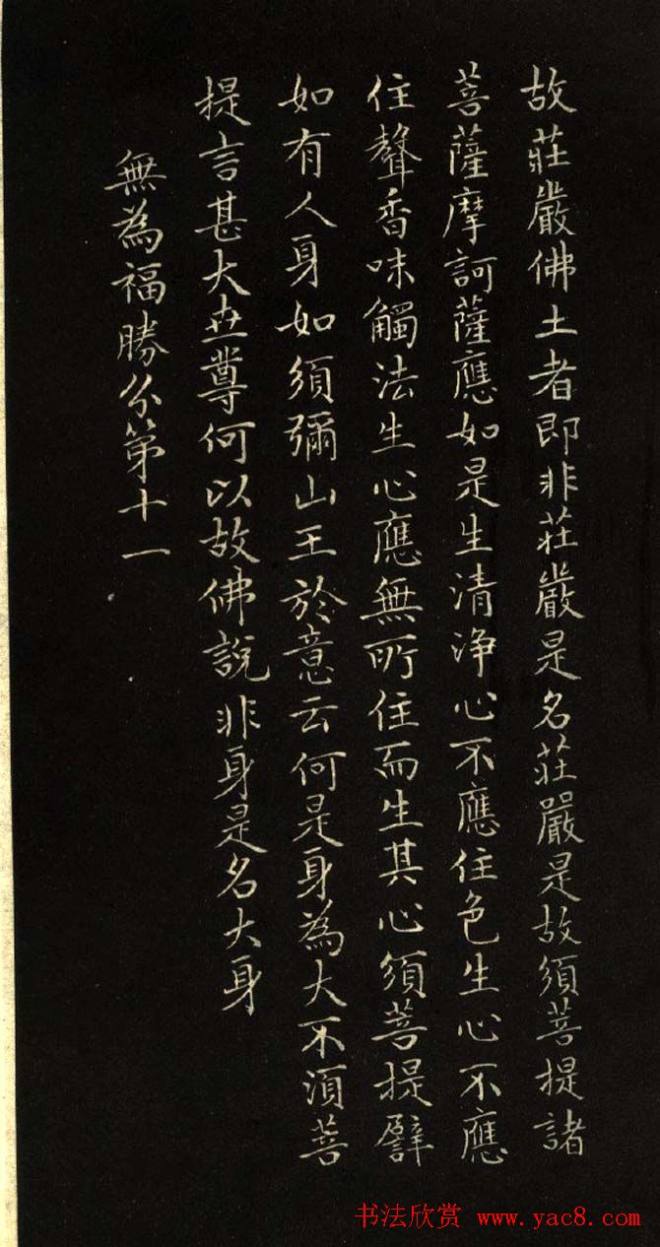 故莊嚴佛土者即非莊嚴是名莊嚴是故須菩提諸
菩薩摩訶薩應如是生清淨心不應住色生心不應
住聲香味觸法生心應無所住而生其心須菩提譬
如有人身如須彌山王於意云何是身為大不須菩
提言甚大世尊何以故佛說非身是名大身
無為福勝分第十一
书法欣赏 www.yac8.com